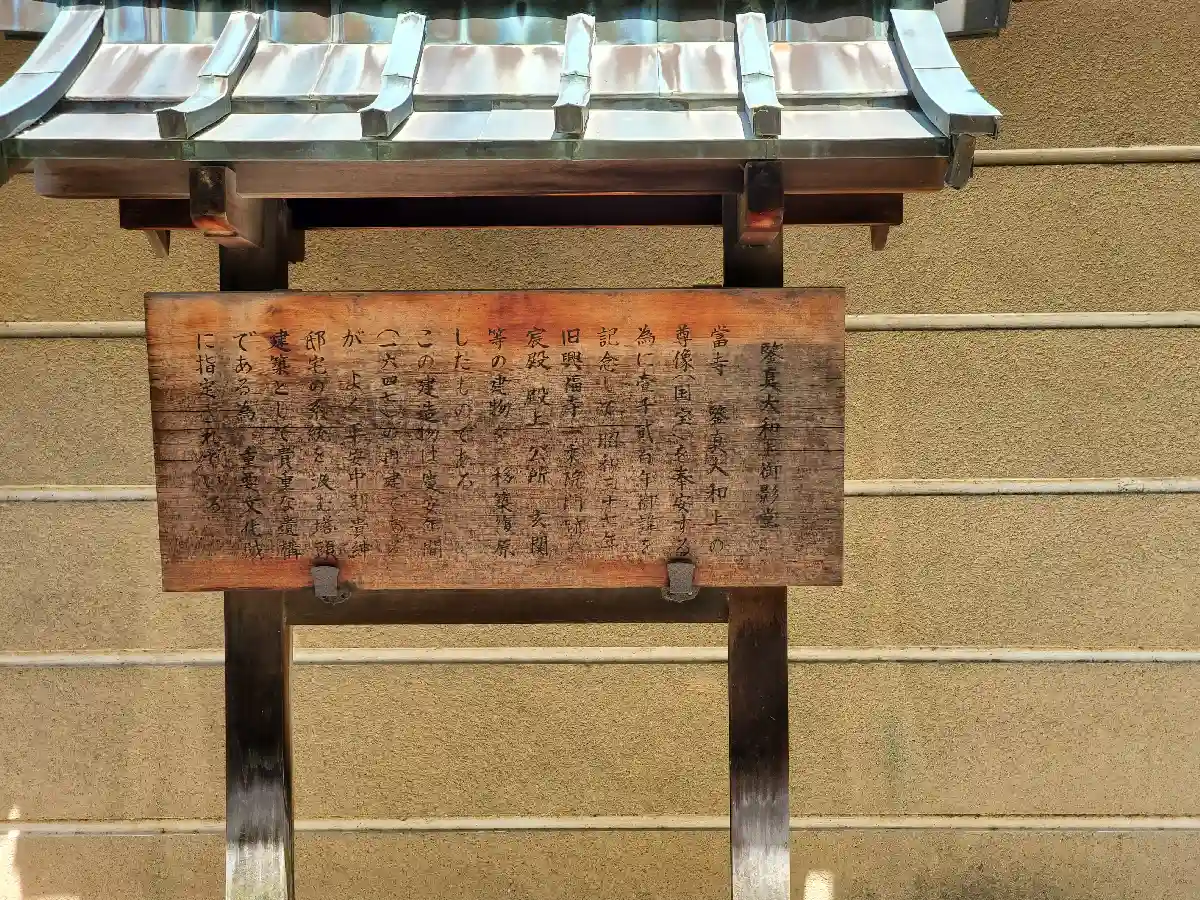 鑒真大和上御影堂
當寺 鑒真大和上の
尊像(国宝)を奉安する
為に壹千貳百年御諱を
記念して昭和三十七年
旧興福寺一乗院門跡
宸殿 殿上 公所 玄関
等の建物を 移築復原
したものである
この建造物は慶安年間
(一六四七)の再建である
が よく平安中期貴紳
邸宅の系統を汲む塔頭
建築として貴重な遺構
である為 重要文化財
に指定されている